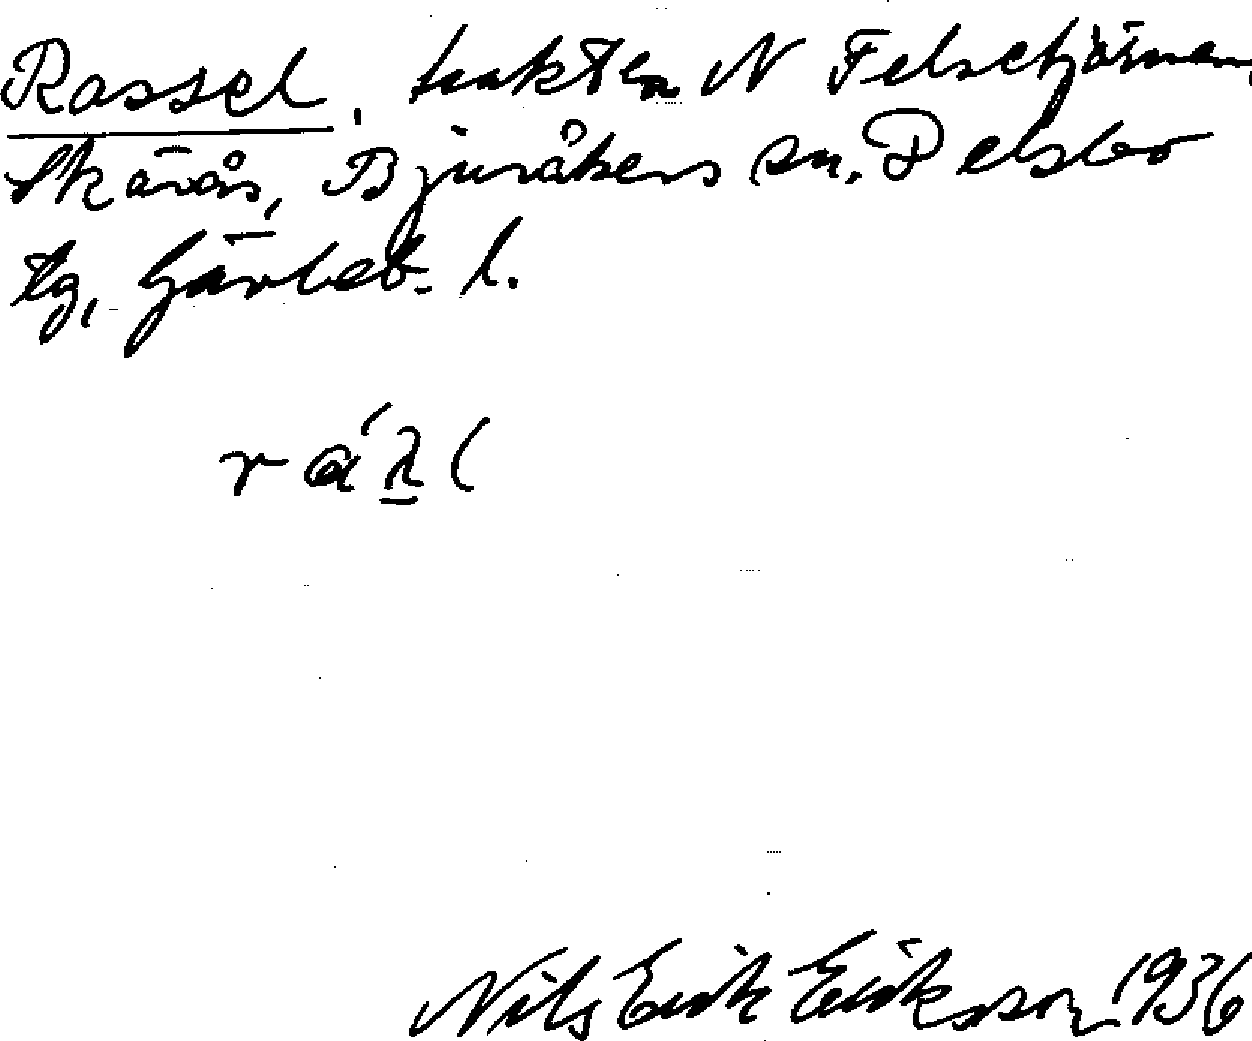 Rassel, trakten N Felstjärnen,
Skärås, Bjuråkers sn. Delsbo
tg, Gävleb. l.
Nils Erik Eriksson 1936